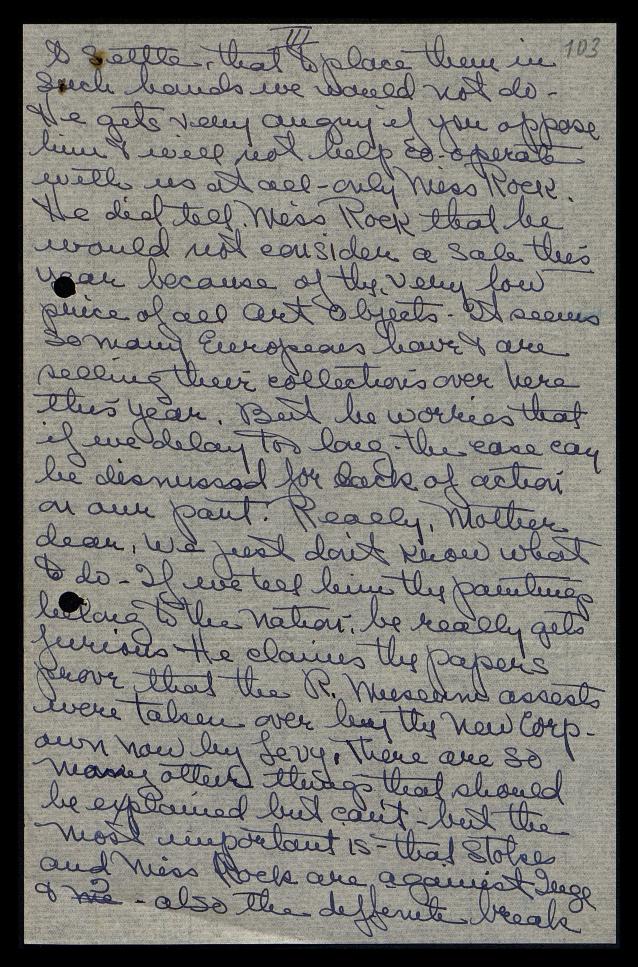 III
103
to settle, that to place them in
such hands we would not do -
He gets very angry if you oppose
him & will not help co-operate
with us at all - only Miss Rock.
He did tell Miss Rock that he
would not consider a sale this
year because of the very low
price of all Art Objects - It seems
so many Europeans have & are
selling their collections over here
this year. But he worries that
if we delay too long - the case can
be dismissed for lack of action
on our part. Really, Mother
dear, we just don't know what
to do - If we tell him the paintings
belong to the nation, he really gets
furious - He claims the papers
prove that the R. Museum assests
were taken over by the New Corp -
own now by Levy. There are so
many other things that should
be explained but can't - but the
most important is - that Stokes
and Miss Rock are against Inge
& me - also the deffenite break